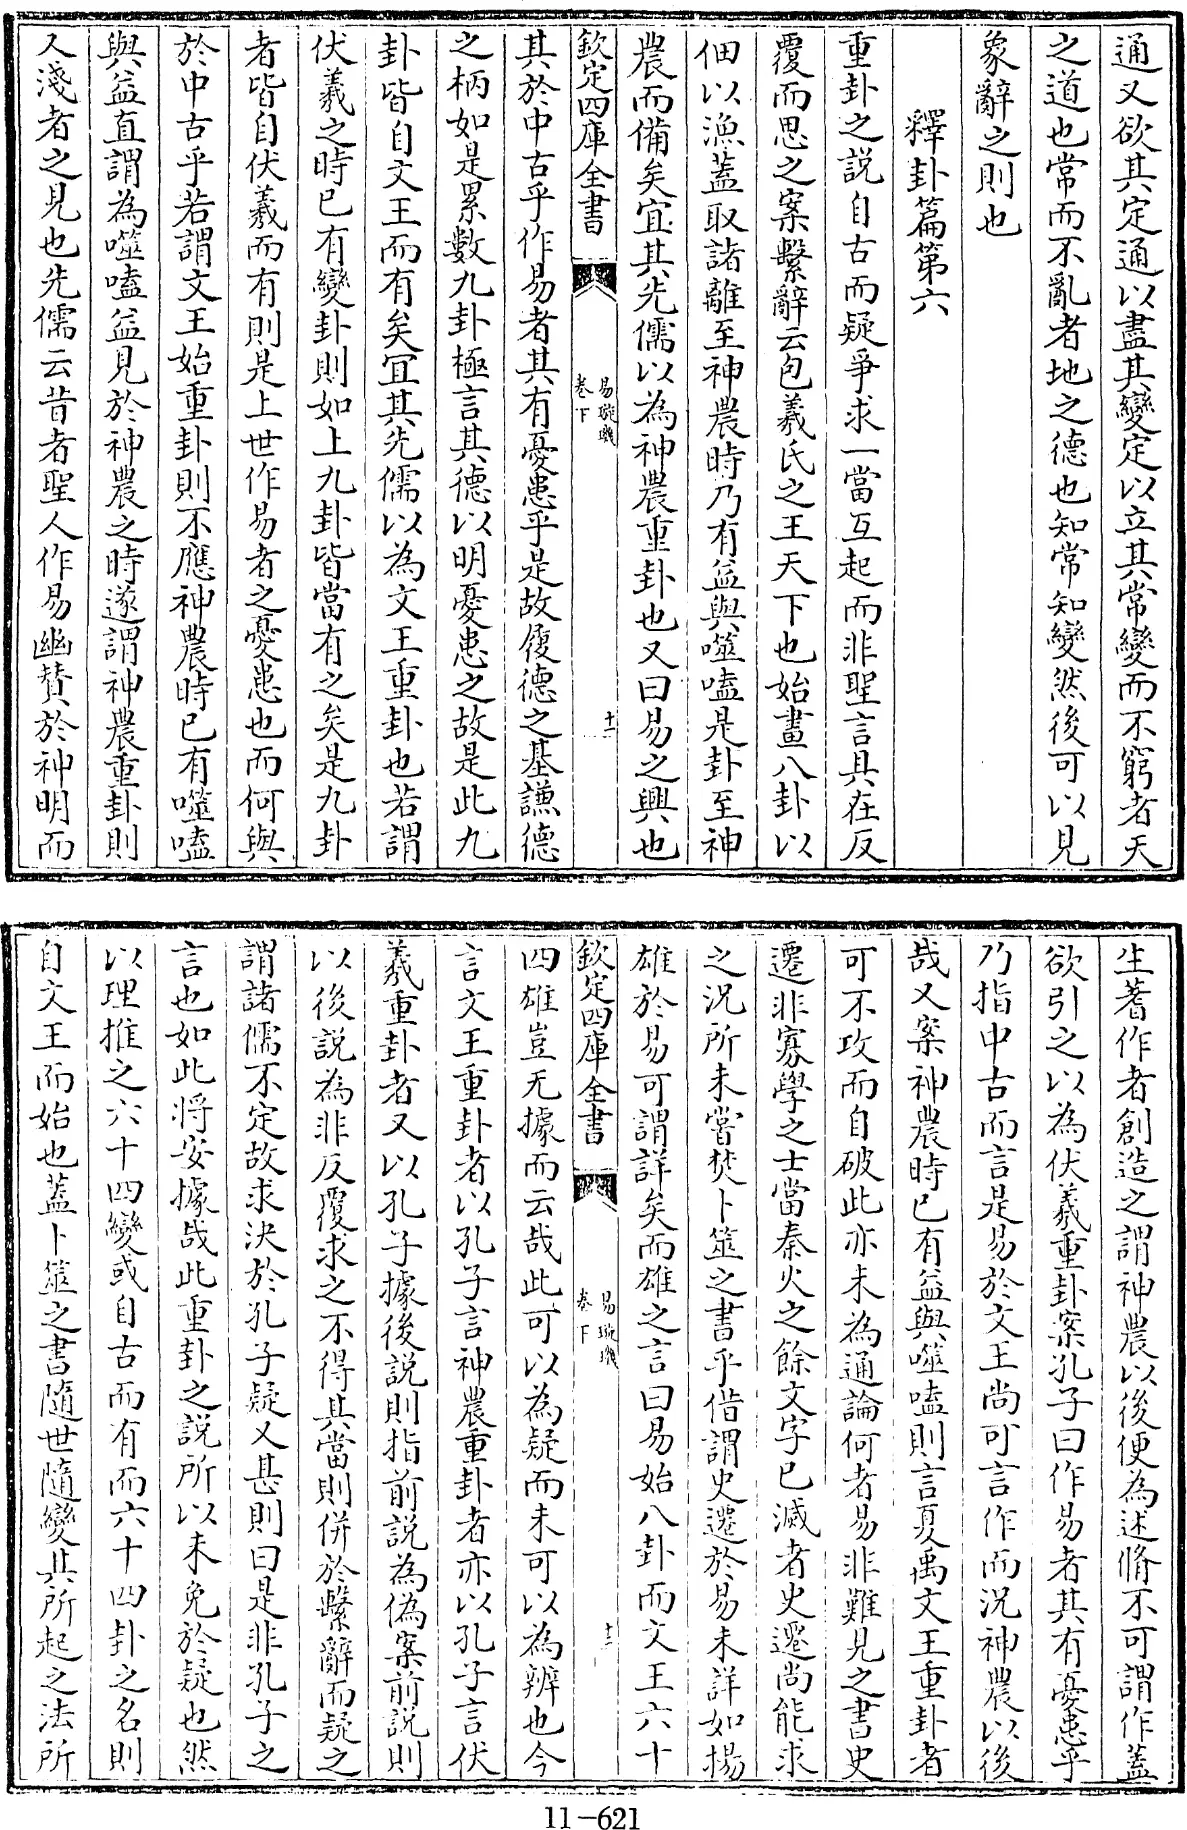 通又欲其定通以盡其變定以立其常變而不窮者天
之道也常而不亂者地之德也知常知變然後可以見
象辭之則也
釋卦篇第六
重卦之説自古而疑爭求一當互起而非聖言具在反
覆而思之案繫辭云包羲氏之王天下也始畫八卦以
佃以漁蓋取諸離至神農時乃有益與噬嗑是卦至神
農而備矣宜其先儒以為神農重卦也又曰易之興也
欽定四庫全書
易璇璣
卷下
十一
其於中古乎作易者其有憂患乎是故履德之基謙德
之柄如是累數九卦極言其德以明憂患之故是此九
卦皆自文王而有矣宜其先儒以為文王重卦也若謂
伏羲之時已有變卦則如上九卦皆當有之矣是九卦
者皆自伏羲而有則是上世作易者之憂患也而何與
於中古乎若謂文王始重卦則不應神農時已有噬嗑
與益直謂為噬嗑益見於神農之時遂謂神農重卦則
又淺者之見也先儒云昔者聖人作易幽贊於神明而
生蓍作者創造之謂神農以後便為述脩不可謂作蓋
欲引之以為伏羲重卦案孔子曰作易者其有憂患乎
乃指中古而言是易於文王尚可言作而況神農以後
哉又案神農時已有益與噬嗑則言夏禹文王重卦者
可不攻而自破此亦未為通論何者易非難見之書史
遷非寡學之士當秦火之餘文字已滅者史遷尚能求
之況所未嘗焚卜筮之書乎借謂史遷於易未詳如揚
雄於易可謂詳矣而雄之言曰易始八卦而文王六十
欽定四庫全書
易璇璣
卷下
十二
四雄豈无據而云哉此可以為疑而未可以為辨也今
言文王重卦者以孔子言神農重卦者亦以孔子言伏
羲重卦者又以孔子據後説則指前説為偽案前説則
以後説為非反覆求之不得其當則併於繫辭而疑之
謂諸儒不定故求決於孔子疑又甚則曰是非孔子之
言也如此將安據哉此重卦之説所以未免於疑也然
以理推之六十四變或自古而有而六十四卦之名則
自文王而始也蓋卜筮之書隨世隨變其所起之法所
11-621